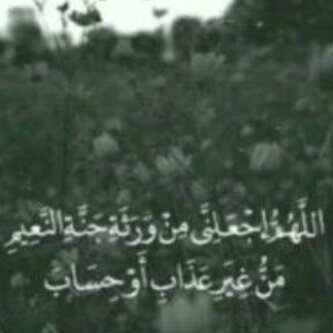 اللَّهُمَّ اِجْعَلْنَي مِنْ وَرَثَةِ جَنَّةِ النَّعِيمِ
مَنُّ غِيَرِ عَذَابِ أَوْ حِسَابَ